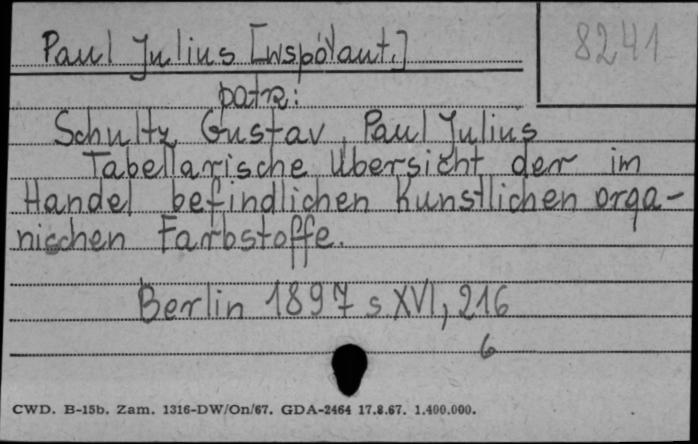 8241
Paul Julius [współaut.]
patrz:
Schultz Gustav, Paul Julius
Tabellarische Übersicht der im
Handel befindlichen künstlichen orga-
nischen Farbstoffe.
Berlin 1897 s XVI, 216
6
CWD. B-15b. Zam. 1316-DW/On/67. GDA-2464 17.8.67. 1.400.000.